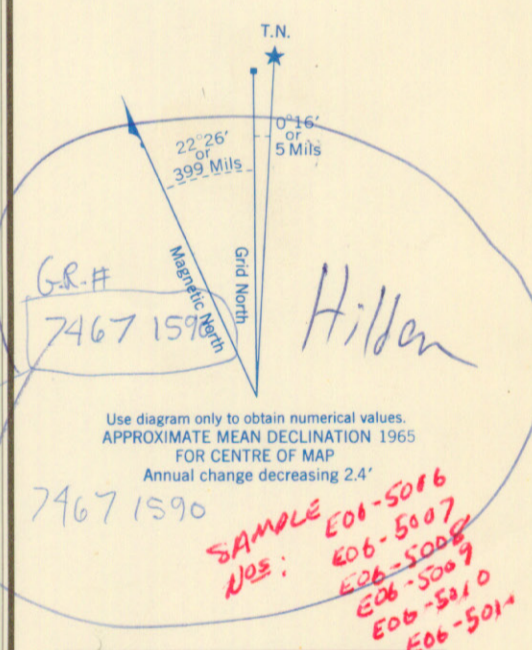 T.N.
22°26′
or
399 Mils
0°16′
or
5 Mils
Magnetic North
Grid North
G.R.#
7467 1590
Hilden
Use diagram only to obtain numerical values.
APPROXIMATE MEAN DECLINATION 1965
FOR CENTRE OF MAP
Annual change decreasing 2.4′
7467 1590
SAMPLE
NOS:
E06-5006
E06-5007
E06-5008
E06-5009
E06-5010